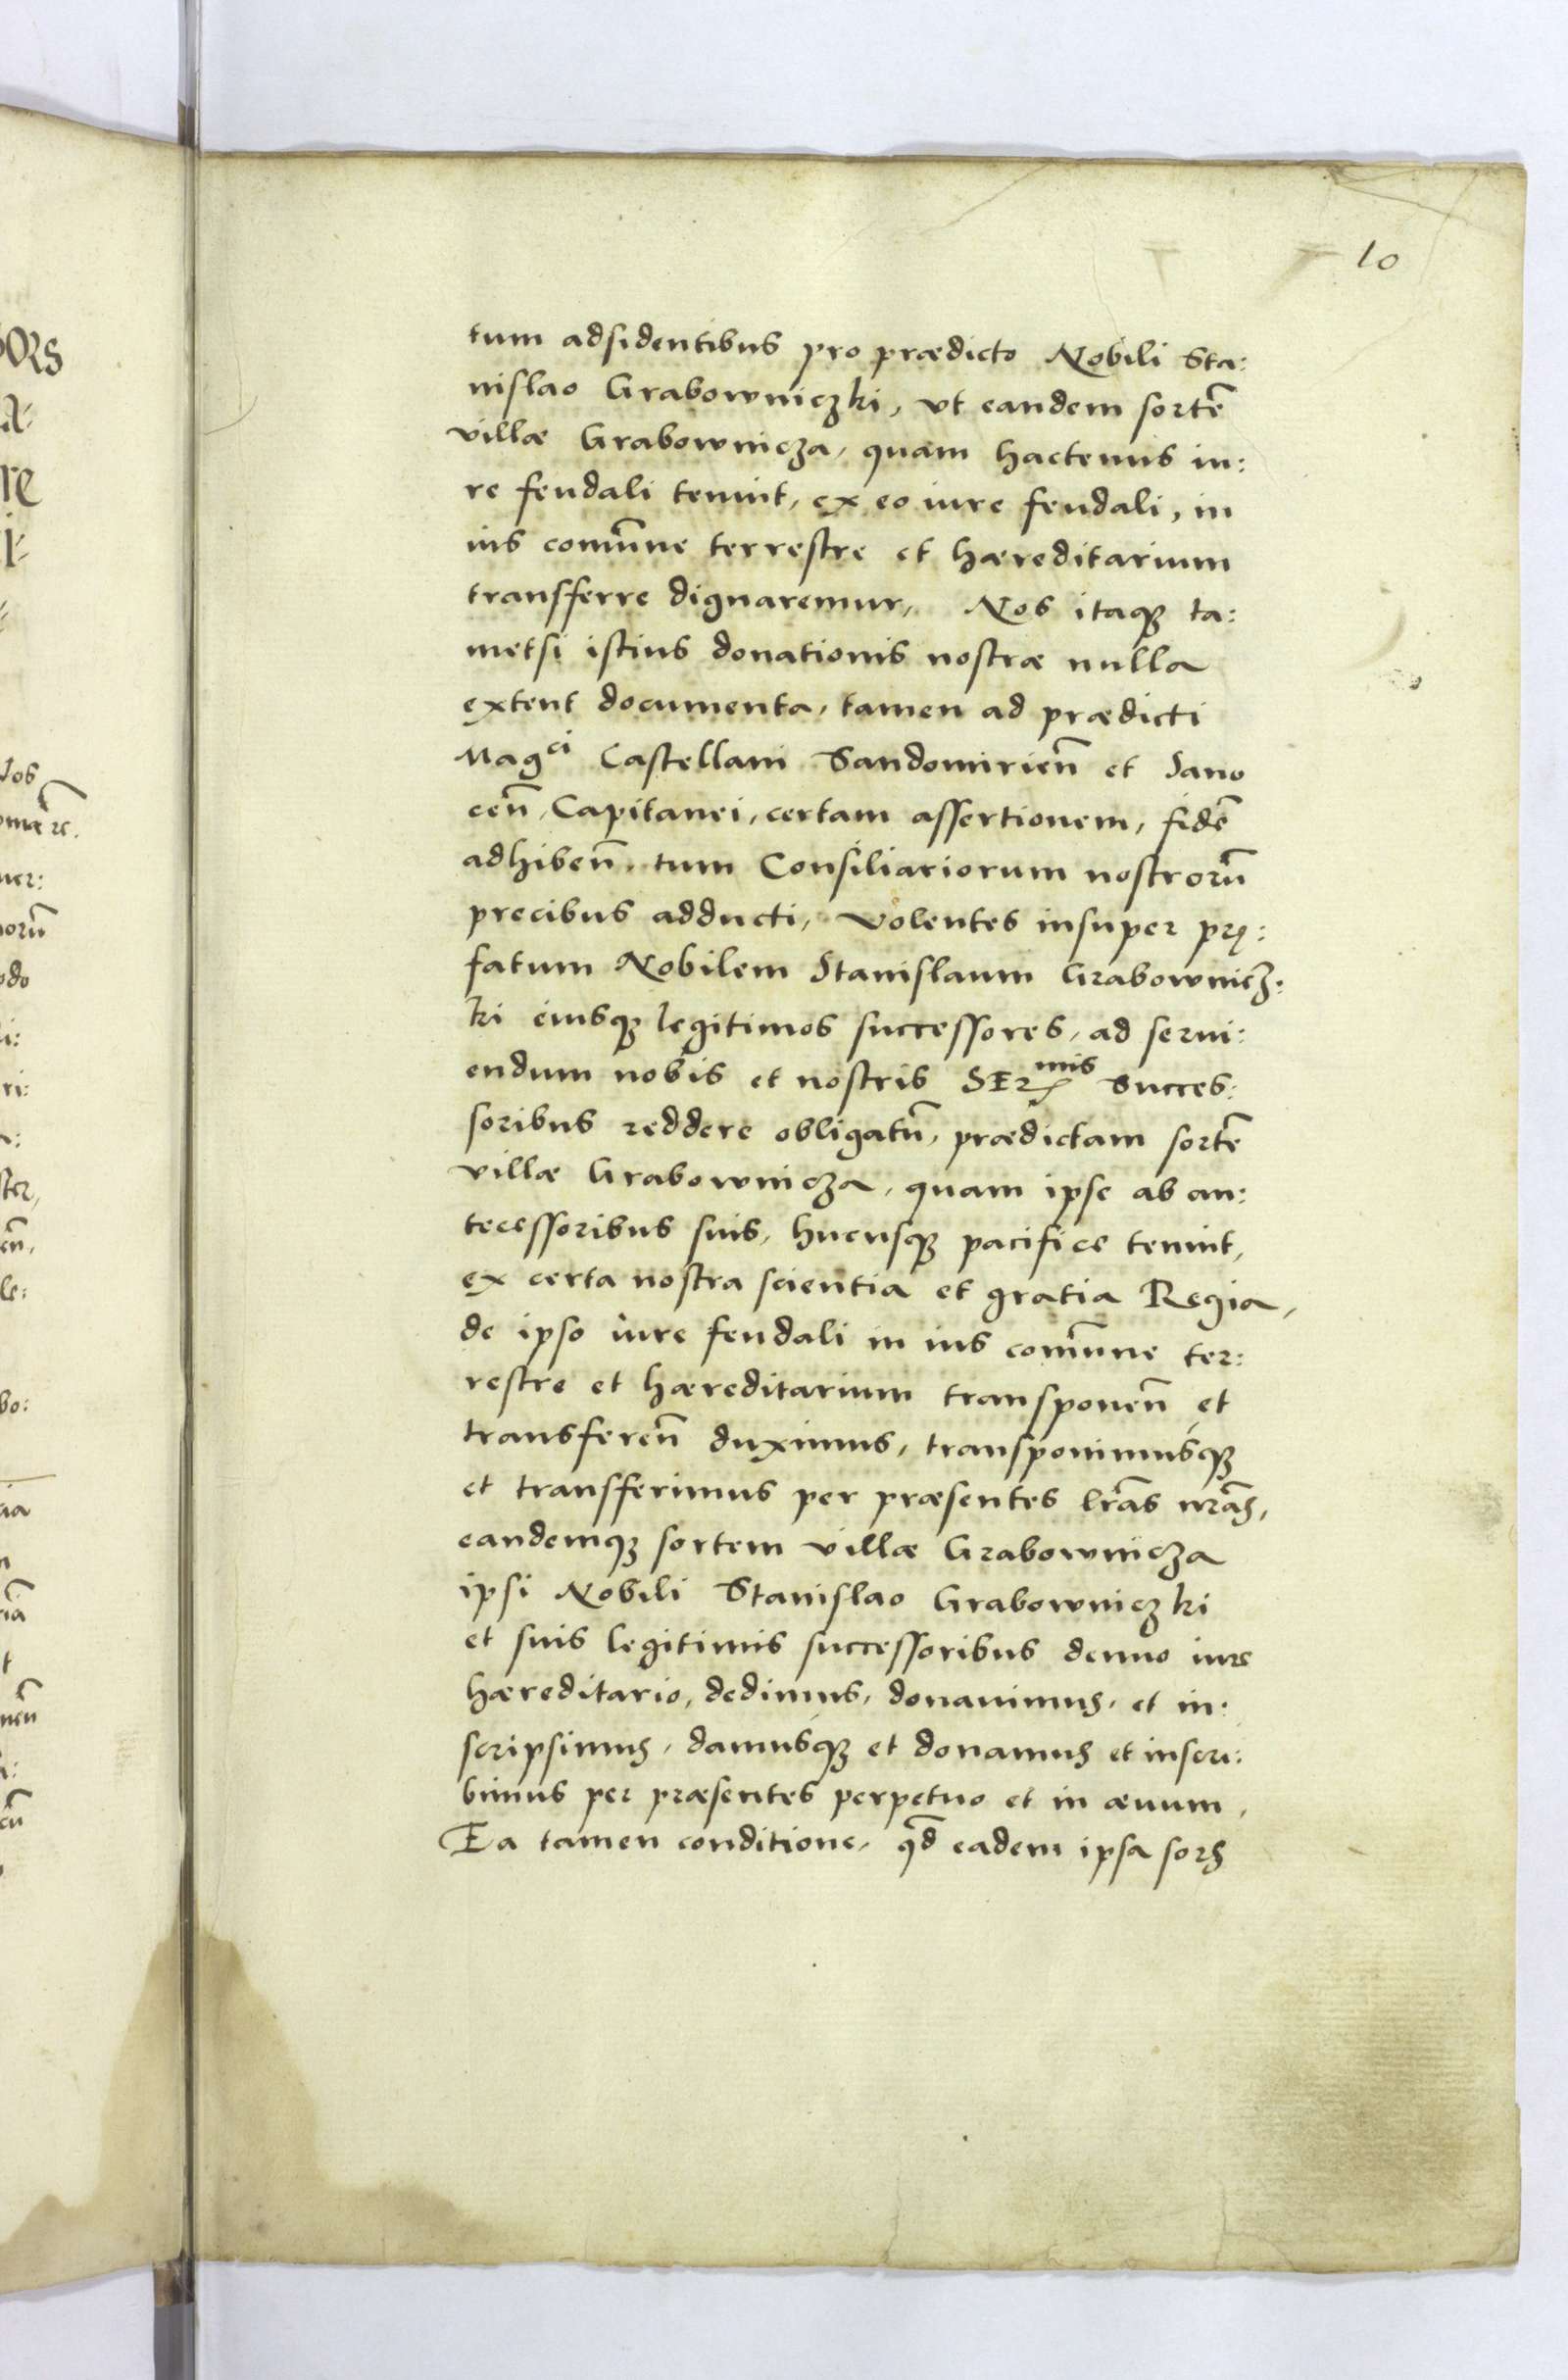 10
tum adsidentibus pro prædicto Nobili Sta:
nislao Grabowniczki, vt eandem sortē
villæ Grabownicza, quam hactenus iu:
re feudali tenuit, ex eo iure feudali, in
ius comūne terrestre et hæreditarium
transferre dignaremur, Nos itaqꝫ ta:
metsi istius donationis nostræ nulla
extent documenta, tamen ad prædicti
Mag^ci Castellani Sandomirieñ et Sano
ceñ, Capitanei, certam assertionem, fidē
adhibeñ, tum Consiliariorum nostrorū
precibus adducti, Volentes insuper prę:
fatum Nobilem Stanislaum Grabownicz:
ki eiusqꝫ legitimos successores, ad serui:
endum nobis et nostris SEr^mis Succes:
soribus reddere obligatū, prædictam sortē
villæ Grabownicza, quam ipse ab an:
tecessoribus suis, hucusqꝫ pacifice tenuit,
ex certa nostra scientia et gratia Regia,
de ipso iure feudali in ius comūne ter:
restre et hæreditarium transponeñ et
transfereñ duximus, transponimusqꝫ
et transferimus per præsentes lr̃as nr̃as,
eandemqꝫ sortem villæ Grabownicza
ipsi Nobili Stanislao Grabowniczki
et suis legitimis successoribus denuo iure
hæreditario, dedimus, donauimus, et in:
scripsimus, damusqꝫ et donamus et inscri:
bimus per præsentes perpetuo et in æuum,
Ea tamen conditione, qd̄ eadem ipsa sors